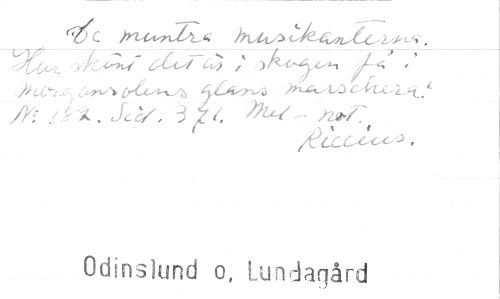 De muntra musikanterna.
Hur skönt det är i skogen få i
morgonsolens glans marschera!
No 182. Sid. 371. Mel - not.
Riccius.
Odinslund o, Lundagård